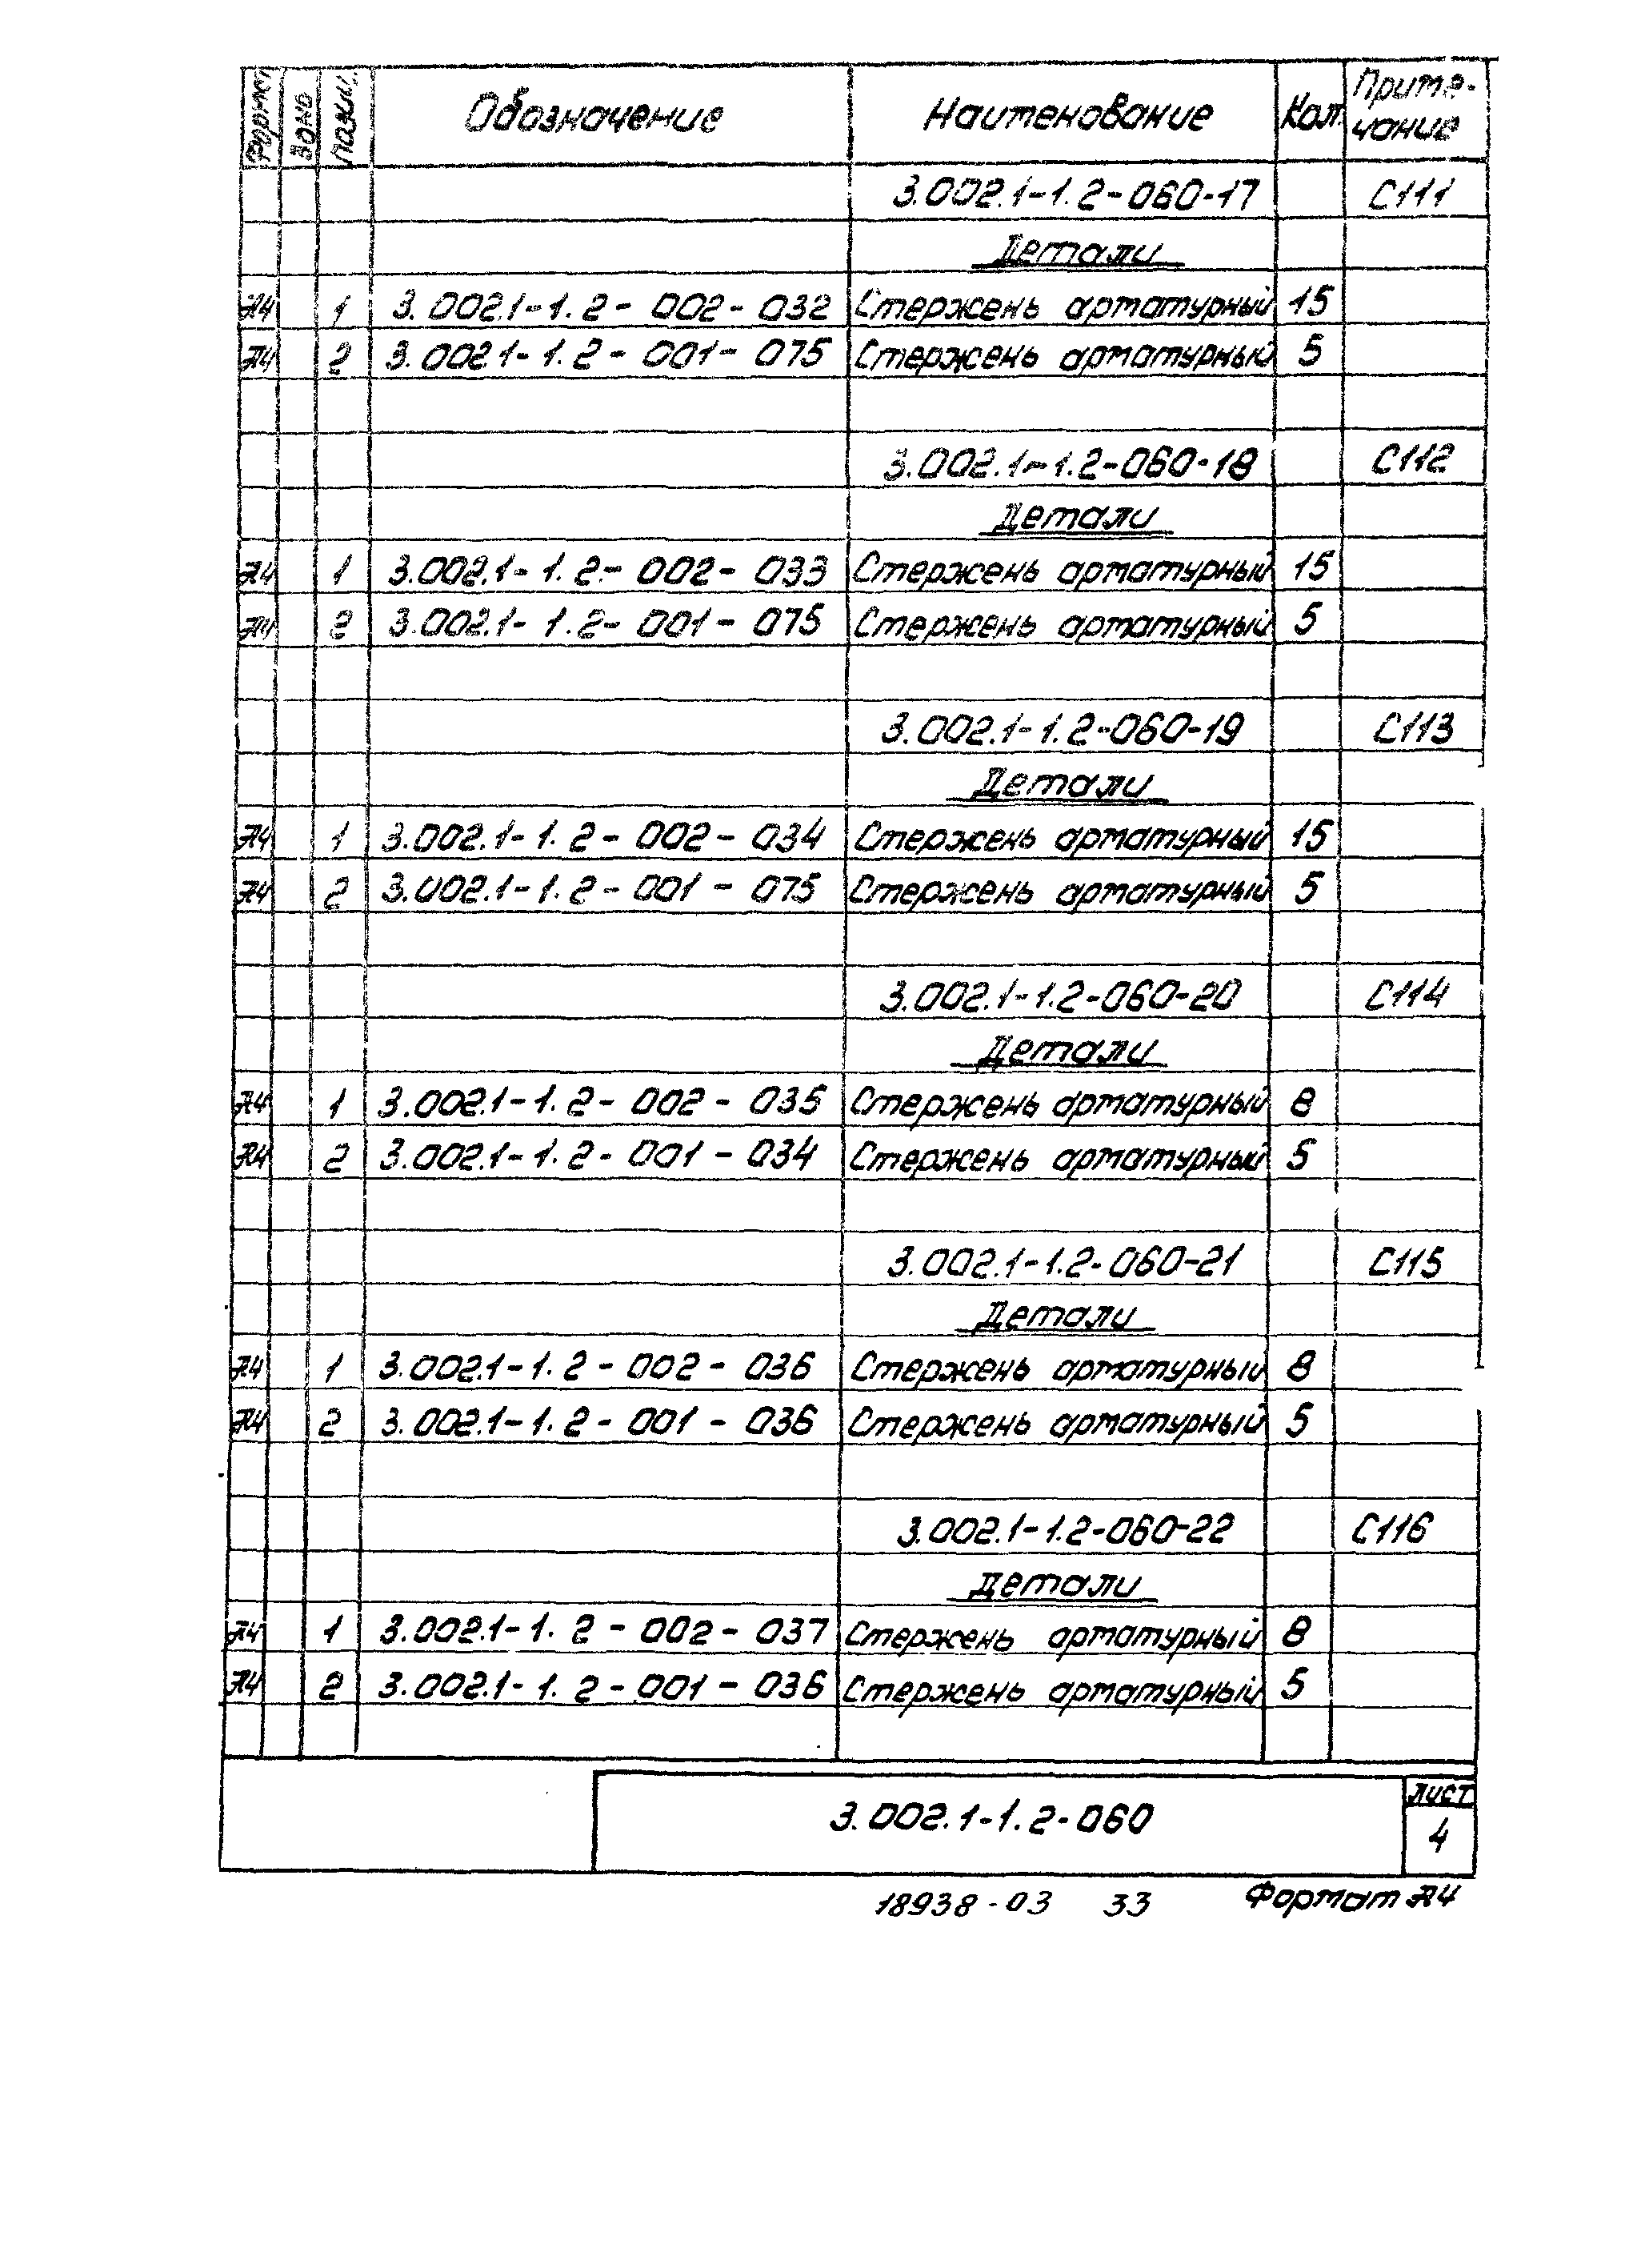 Формат Зона Позиц. Обозначение Наименование Кол. Приме-
чание
3.002.1-1.2-060-17 С111
Детали
А4 1 3.002.1-1.2-002-032 Стержень арматурный 15
А4 2 3.002.1-1.2-001-075 Стержень арматурный 5
3.002.1-1.2-060-18 С112
Детали
А4 1 3.002.1-1.2-002-033 Стержень арматурный 15
А4 2 3.002.1-1.2-001-075 Стержень арматурный 5
3.002.1-1.2-060-19 С113
Детали
А4 1 3.002.1-1.2-002-034 Стержень арматурный 15
А4 2 3.002.1-1.2-001-075 Стержень арматурный 5
3.002.1-1.2-060-20 С114
Детали
А4 1 3.002.1-1.2-002-035 Стержень арматурный 8
А4 2 3.002.1-1.2-001-034 Стержень арматурный 5
3.002.1-1.2-060-21 С115
Детали
А4 1 3.002.1-1.2-002-036 Стержень арматурный 8
А4 2 3.002.1-1.2-001-036 Стержень арматурный 5
3.002.1-1.2-060-22 С116
Детали
А4 1 3.002.1-1.2-002-037 Стержень арматурный 8
А4 2 3.002.1-1.2-001-036 Стержень арматурный 5
3.002.1-1.2-060
лист
4
18938-03 33 Формат А4